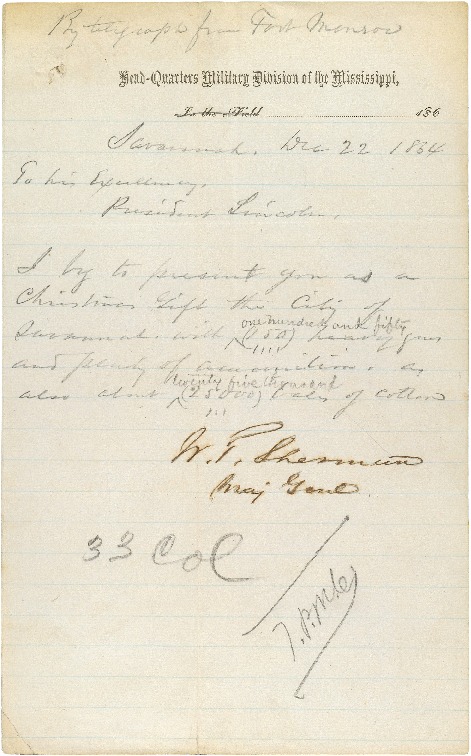 By telegraph from Fort Monroe
Head-Quarters Military Division of the Mississippi,
In the Field 186
Savannah, Dec 22 1864
To his Excellency,
President Lincoln,
I beg to present you as a
Christmas Gift the City of
one hundred and fifty
Savannah with (150) heavy guns
and plenty of ammunition. &
twenty five thousand
also about (25000) bales of cotton
W. T. Sherman
Maj Genl.
33 Col